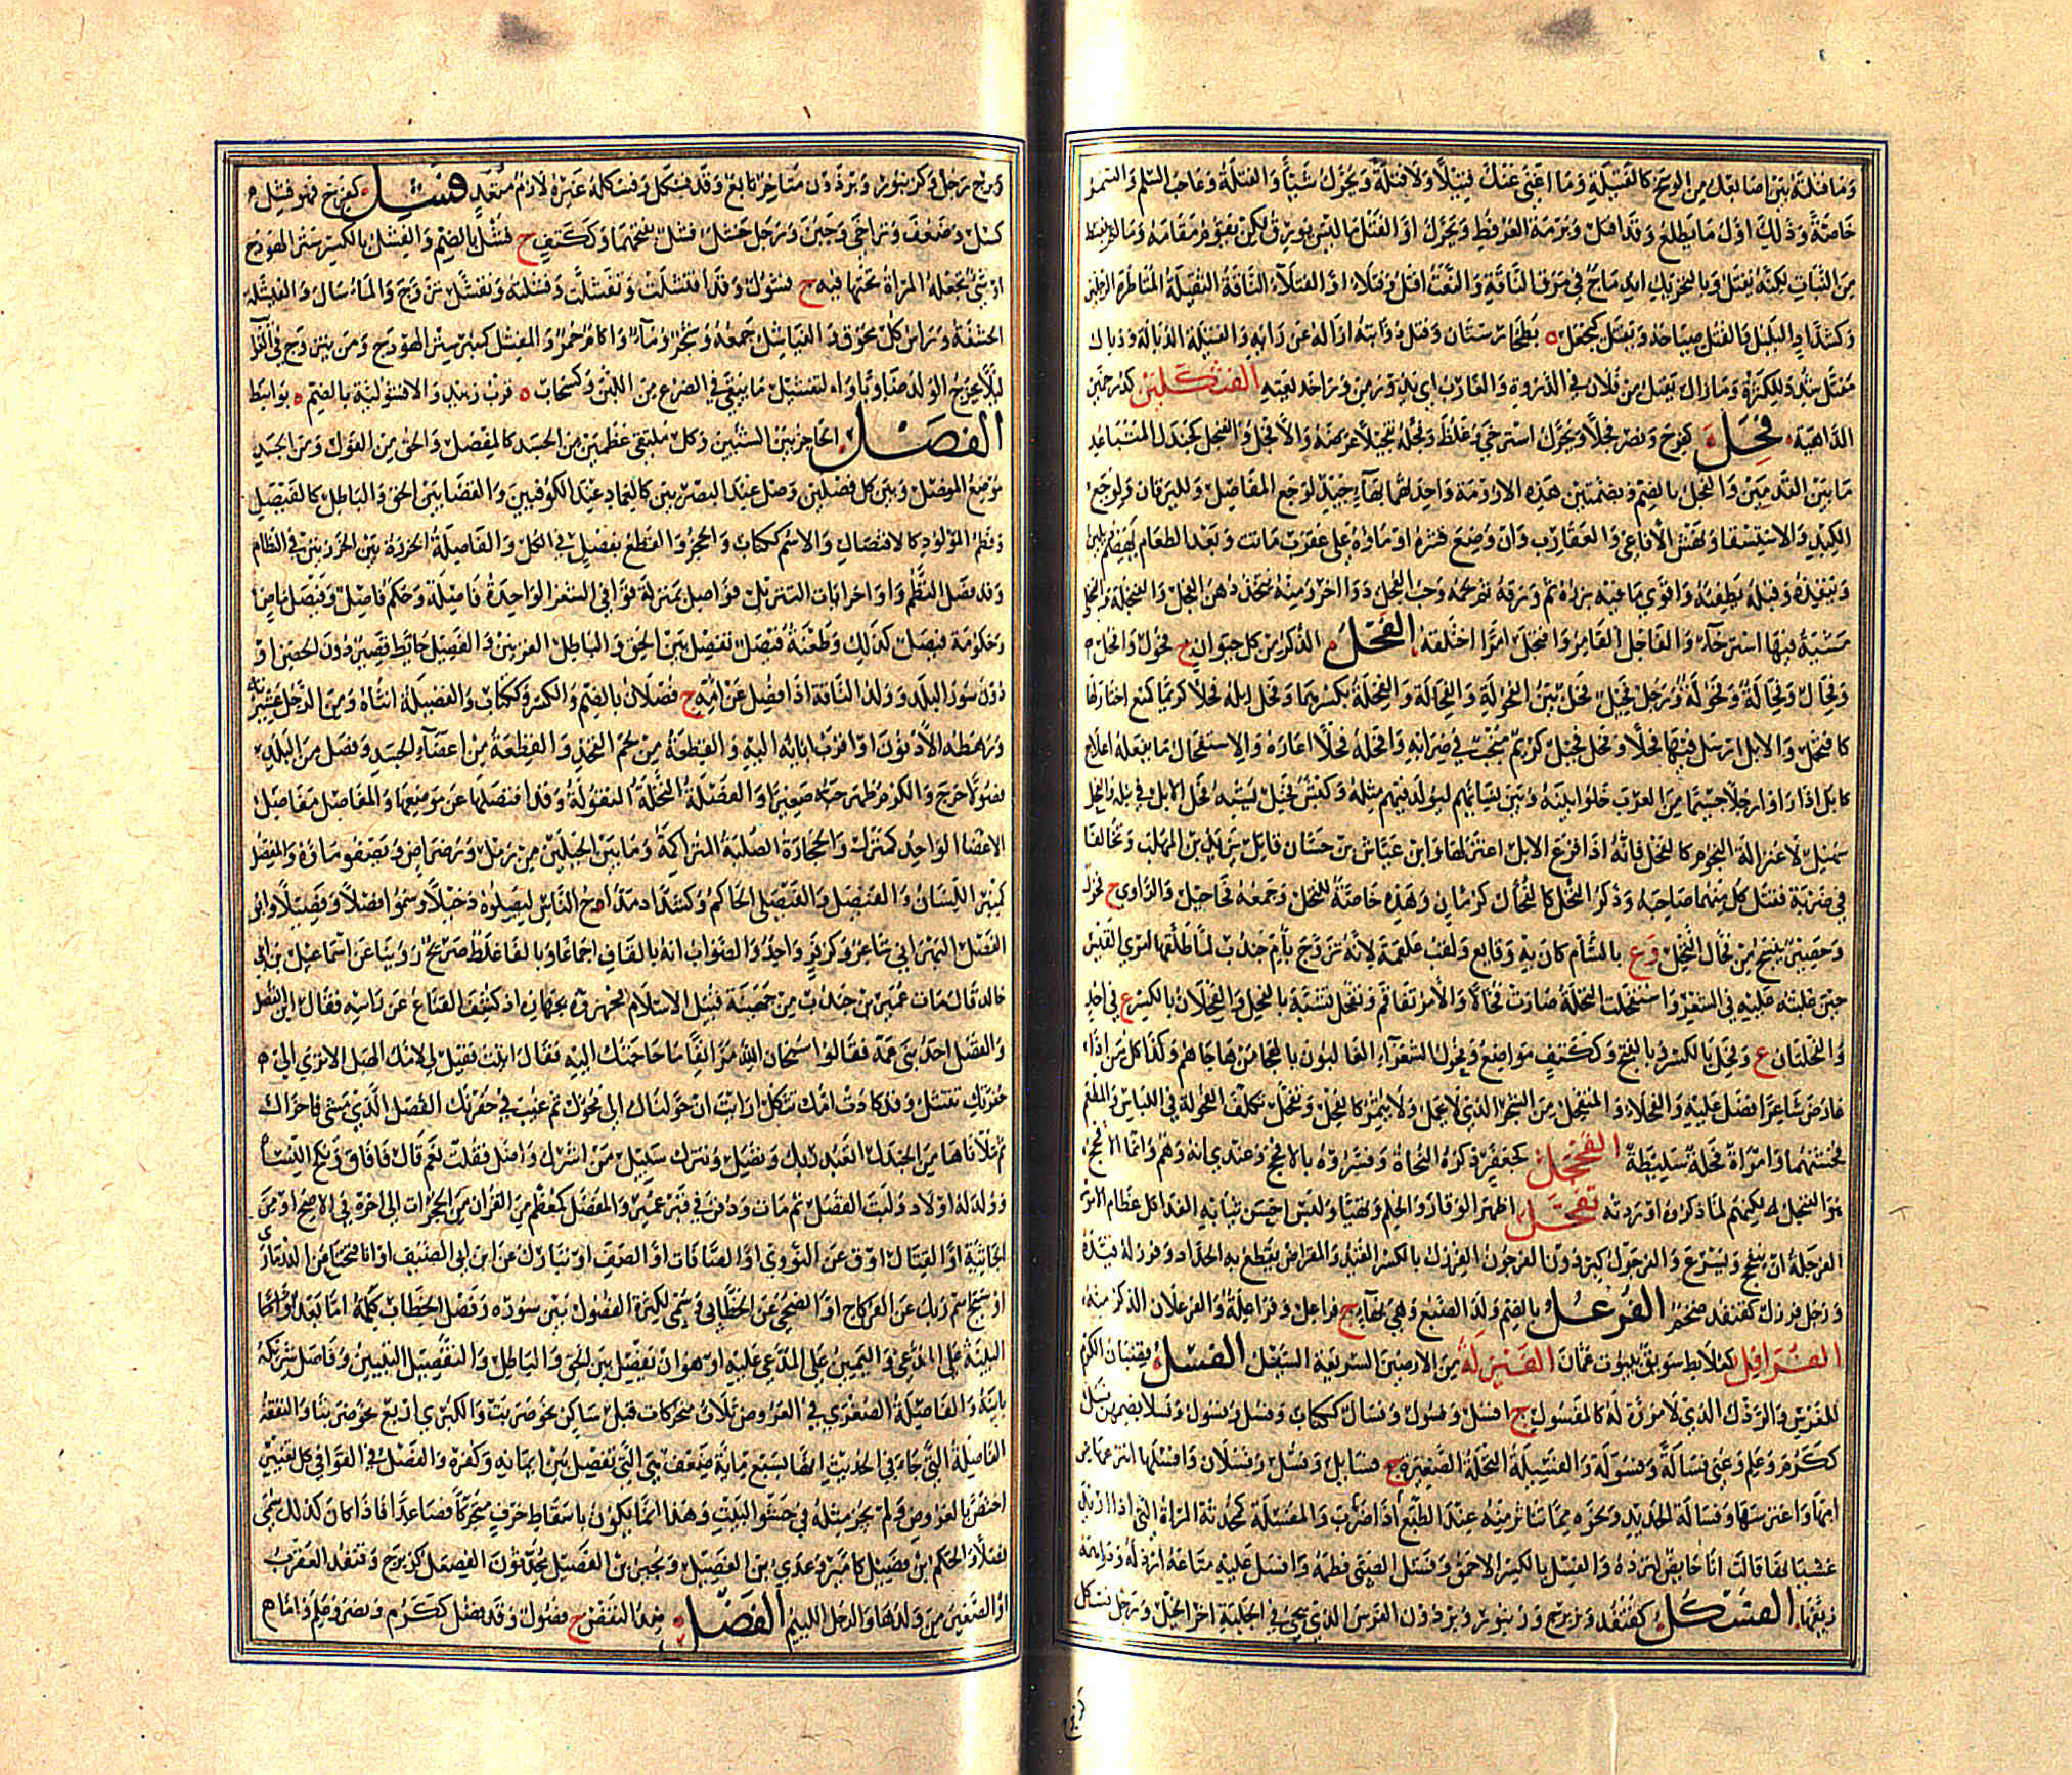 وما فتلته بين أصابعك من الوسخ كالفتيلة وما أغنى عنك فتيلا ولا فتلة ويحرك شيأ والفتلة وعاء حب السلم والسمر
خاصة وذلك أول ما يطلع وقد أفتل وبرمة العرفط ويحرك أو الفتل ما ليس بورق ولكن يقوم مقامه وما لم ينبسط
من النبات لكنه يفتل وبالتحريك اندماج في مرفق الناقة والنعت أفتل وفتلاء أو الفتلاء الناقة الثقيلة المتأطرة الرجلين
وكشداد البلبل والفتل صياحه ويفتل كيجعل بطخارستان وفتل ذؤابته أزاله عن رأيه والفتيلة الذبالة وذبال
مفتل شدد للكثرة وما زال يفتل من فلان في الذروة والغارب أي يدور من وراء خديعته الفتكلين كدرخمين
الداهية فجل كفرح ونصر فجلا ويحرك استرخى وغلظ وفجله تفجيلا عرضه والأفجل والفنجل كجندل المتباعد
ما بين القدمين والفجل بالضم وبضمتين هذه الأرومة واحدتها بهاء جيد لوجع المفاصل ولليرقان ولوجع
الكبد والاستسقاء ونهش الأفاعي والعقارب وإن وضع قشره أو ماؤه على عقرب ماتت وبعد الطعام يهضم ويلين
وينفذه وقبله يطفئه وأقوى ما فيه بزره ثم ورقه ثم لحمه وحب الفجل دواء آخر ومنه يتخذ دهن الفجل والفنجلة والفنجلى
مشية فيها استرخاء والفاجل القامر وافتجل أمرا اختلقه الفحل الذكر من كل حيوان ج فحول وأفحل
وفحال وفحالة وفحولة ورجل فحيل فحل بين الفحولة والفحالة والفحلة بكسرهما وفحل إبله فحلا كريما كمنع اختار لها
كافتحل والإبل أرسل فيها فحلا وفحل فحيل كريم منجب في ضرابه وأفحله فحلا أعاره والاستفحال ما يفعله أعلاج
كابل إذا رأوا رجلا جسيما من العرب خلوا بينه وبين نسائهم ليولد فيهم مثله وكبش فحيل يشبه فحل الإبل في نبله والفحل
سهيل لاعتزاله النجوم كالفحل فإنه إذا قرع الإبل اعتزلها وابن عياش بن حسان قاتل يزيد بن المهلب وتخالفا
في ضربة فقتل كل منهما صاحبه وذكر النخل كالفحال كرمان وهذه خاصة للنخل وجمعه فحاحيل والراوي ج فحول
وحصير ينسج من فحال النخل وع بالشأم كان به وقائع ولقب علقمة لأنه تزوج بأم جندب لما طلقها امرؤ القيس
حين غلبته عليه في الشعر واستفحلت النخلة صارت فحالا والأمر تفاقم وتفحل تشبه بالفحل والفحلان بالكسر ع في أحد
والفحلتان ع وفحل بالكسر وبالفتح وككتف مواضع وفحول الشعراء الغالبون بالهجاء من هاجاهم وكذا كل من إذا
عارض شاعرا فضل عليه والفحلاء والمتفحل من الشجر الذي لا يحمل ولا يثمر كالفحل وتفحل تكلف الفحولة في اللباس والمطعم
فخشنهما وامرأة فحلة سليطة الفحجل كجعفر ذكره النحاة وفسروه بالأفحج وعندي أنه وهم وإنما الأفحج
هو الفنجل له لكنهم لما ذكروا أوردته تفحل أظهر الوقار والحلم وتهيأ ولبس أحسن ثيابه الفدا كل عظام الأمر
الفرجلة أن يتفحج ويسرع والفرجول كبرذون الفرجون الفرزل بالكسر القيد والمقراض يقطع به الحداد وفرزله قيده
ورجل فرزل كقنفد ضخم الفرعل بالضم ولد الضبع وهي بهاء ج فراعل وفراعلة والفرعلان الذكر منه
الفرافل كعلابط سويق ينبوت عمان الفنزلة من الأرضين السريعة السيل الفسل قضبان الكرم
للغرس والرذل الذي لا مروة له كالمفسول ج أفسل وفسول وفسال ككتاب وفسل وفسول وفسلاء بضمهن فسل
ككرم وعلم وعني فسالة وفسولة والفسيلة النخلة الصغيرة ج فسائل وفسيل وفسلان وأفسلها انتزعها من
أمها واغترسها وفسالة الحديد ونحوه ما تناثر منه عند الطبع إذا ضرب والمفسلة كمحدثة المرأة التي إذا أريد
غشيانها قالت أنا حائض لترده والفسل بالكسر الأحمق وفسل الصبي فطمه وأفسل عليه متاعه أرذله ودراهمه
زيفها الفسكل كقنفد وزبرج وزنبور وبرذون الفرس الذي يجيء في الحلبة آخر الخيل ورجل فسكل
كزبرج
وزبرج رجل وكزنبور وبرذون متأخر تابع وقد فسكل وفسكله غيره لازم متعد فشل كفرح فهو فشل
كسل وضعف وتراخى وجبن ورجل خشل فشل بفتحهما وككتف ج فشل بالضم والفشل بالكسر ستر الهودج
أو شيء تجعله المرأة تحتها فيه ج فشول وقد افتشلت وتفشلت وفشلته وتفشل تزوج والماء سال والفيشلة
الحشفة ورأس كل محوق والفياشل جمعه وشجر وماء وآكام حمر والمفشل كمنبر ستر الهودج ومن يتزوج في الغرائب
لئلا يخرج الولد ضاويا والتفشيل ما يبقى في الضرع من اللبن وكسحاب قرب زبيد والافشولية بالضم بواسط
الفصل الحاجز بين الشيئين وكل ملتقى عظمين من الجسد كالمفصل والحق من القول ومن الجسد
موضع المفصل وبين كل فصلين وصل عند البصريين كالعماد عند الكوفيين والقضاء بين الحق والباطل كالفيصل
وفطم المولود كالافتصال والاسم ككتاب والحجز والقطع يفصل في الكل والفاصلة الخرزة بين الخرزتين في النظام
وقد فصل النظم وأواخر آيات التنزيل فواصل بمنزلة قوافي الشعر الواحدة فاصلة وحكم فاصل وفيصل ماض
وحكومة فيصل كذلك وطعنة فيصل تفصل بين الحق والباطل القرنين والفصيل حائط قصير دون الحصن أو
دون سور البلد وولد الناقة إذا فصل عن أمه ج فصلان بالضم والكسر وككتاب والفصيلة أنثاه ومن الرجل عشيرته
ورهطه الأدنون أو أقرب آبائه إليه والقطعة من لحم الفخذ والقطعة من أعضاء الجسد وفصل من البلد
فصولا خرج والكرم ظهر حبه صغيرا والفصلة النخلة المنقولة وقد افتصلها عن موضعها والمفاصل مفاصل
الأعضاء الواحد كمنزل والحجارة الصلبة المتراكمة وما بين الجبلين من رمل ورضراض ويصفو ماؤه والمفصل
كمنبر اللسان والفيصل والفيصلي الحاكم وكشداد مداح الناس ليصلوه دخيل وسموا فصلا وفصيلا وأبو
الفصل البهراني شاعر وكزفر واحد والصواب أنه بالقاف إجماعا وبالفاء غلط صريح روينا عن إسماعيل بن أبي
خالد قال مات عمير بن جندب من جهينة قبيل الإسلام فجهزوه بجهازه إذ كشف القناع عن رأسه فقال أين القصل
والقصل أحد بني عمه فقالوا سبحان الله مر آنفا ما حاجتك إليه فقال أتيت فقيل لي لأمك الهبل ألا ترى إلى
حفرتك تنتثل وقد كادت أمك تثكل أرأيت إن حولناك إلى محول ثم غيب في حفرتك القصل الذي مشى فاحزأل
ثم ملأناها من الجندل أتعبد ربك وتصل وتترك سبيل من أشرك وأضل فقلت نعم قال فأفاق ونكح النساء
وولد له أولاد ولبث القصل ثم مات ودفن في قبر عمير والمفصل كمعظم من القرآن من الحجرات إلى آخره في الأصح أو من
الجاثية أو القتال أو ق عن النووي أو الصافات أو الصف أو تبارك عن ابن أبي الصيف أو إنا فتحنا عن الدزماري
أو سبح اسم ربك عن الفركاح أو الضحى عن الخطابي وسمي لكثرة الفصول بين سوره وفصل الخطاب كلمة أما بعد أو
البينة على المدعي واليمين على المدعى عليه أو هو أن يفصل بين الحق والباطل والتفصيل التبيين وفاصل شريكه
باينه والفاصلة الصغرى في العروض ثلاث متحركات قبل ساكن نحو ضربت والكبرى أربع نحو ضربتا والنفقة
الفاصلة التي جاء في الحديث أنها بسبع مائة ضعف هي التي تفصل بين إيمانه وكفره والفصل في القوافي كل تغيير
اختص بالعروض ولم يجز مثله في حشو البيت وهذا إنما يكون بإسقاط حرف متحرك فصاعدا فإذا كان كذلك سمي
فصلا والحكم بن فصيل كأمير وعدي بن الفصيل وبجير بن الفصيل محدثون الفصعل كزبرج وقنفد العقرب
أو الصغير من ولدها والرجل اللئيم الفضل ضد النقص ج فضول وقد فضل ككرم ونصر وعلم وأما